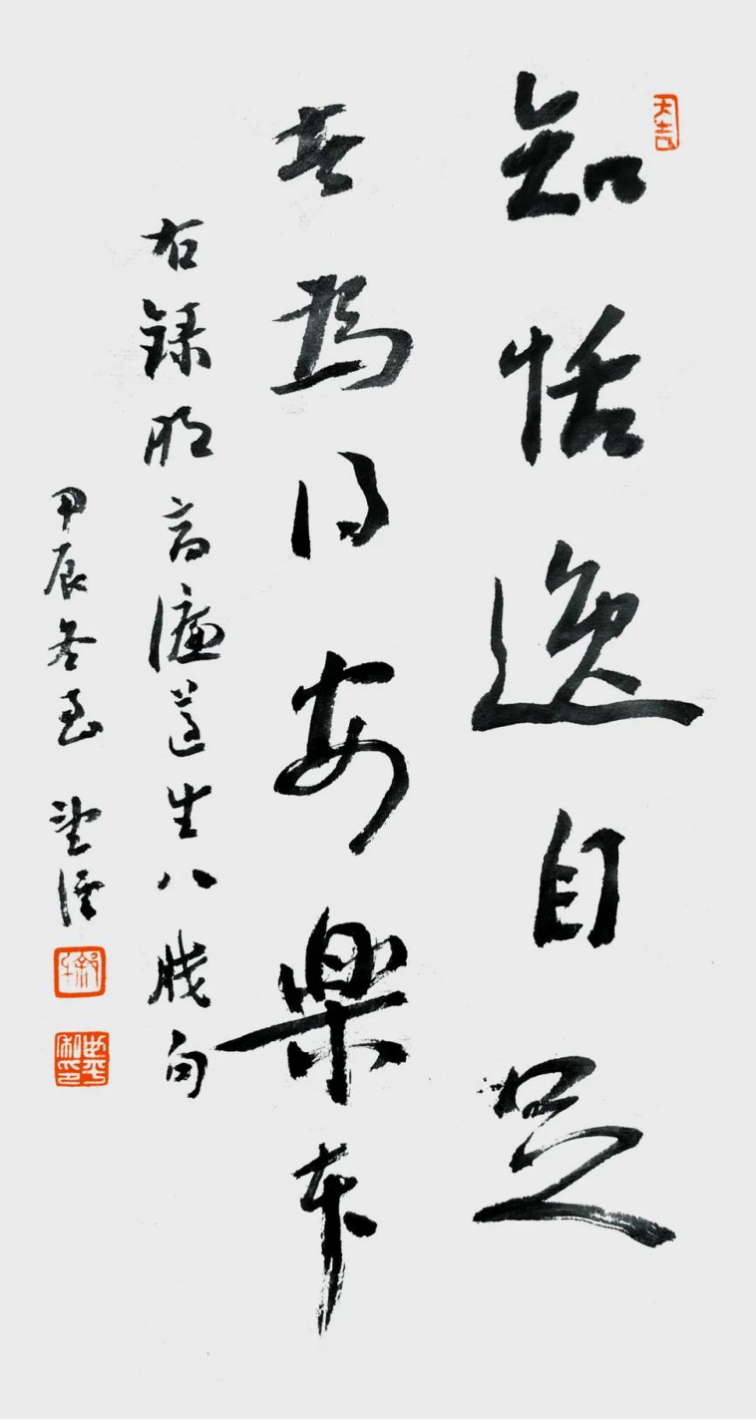 大吉
知恬逸自足
者為得安樂本
右錄明高濂遵生八牋句
甲辰冬至